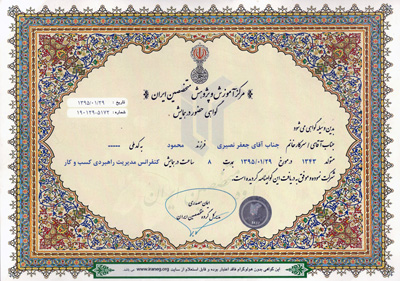 تاریخ : ۱۳۹۵/۰۱/۲۹
شماره : ۱۹۰۱۲۹۰۵۱۷۲
مرکز آموزش و پژوهش متخصصین ایران
گواهی حضور در همایش
بدین وسیله گواهی می شود
جناب آقای / سرکار خانم جناب آقای جعفر نصیری فرزند محمود به کد ملی -----
متولد ۱۳۴۳ در مورخ ۱۳۹۵/۰۱/۲۹ بمدت ۸ ساعت در همایش کنفرانس مدیریت راهبردی کسب و کار
شرکت نموده و موفق به دریافت این گواهینامه گردیده است.
مدیر عامل گروه متخصصین ایران
این گواهی بدون هولوگرام فاقد اعتبار بوده و قابل استعلام از سایت www.iraneg.org می باشد.